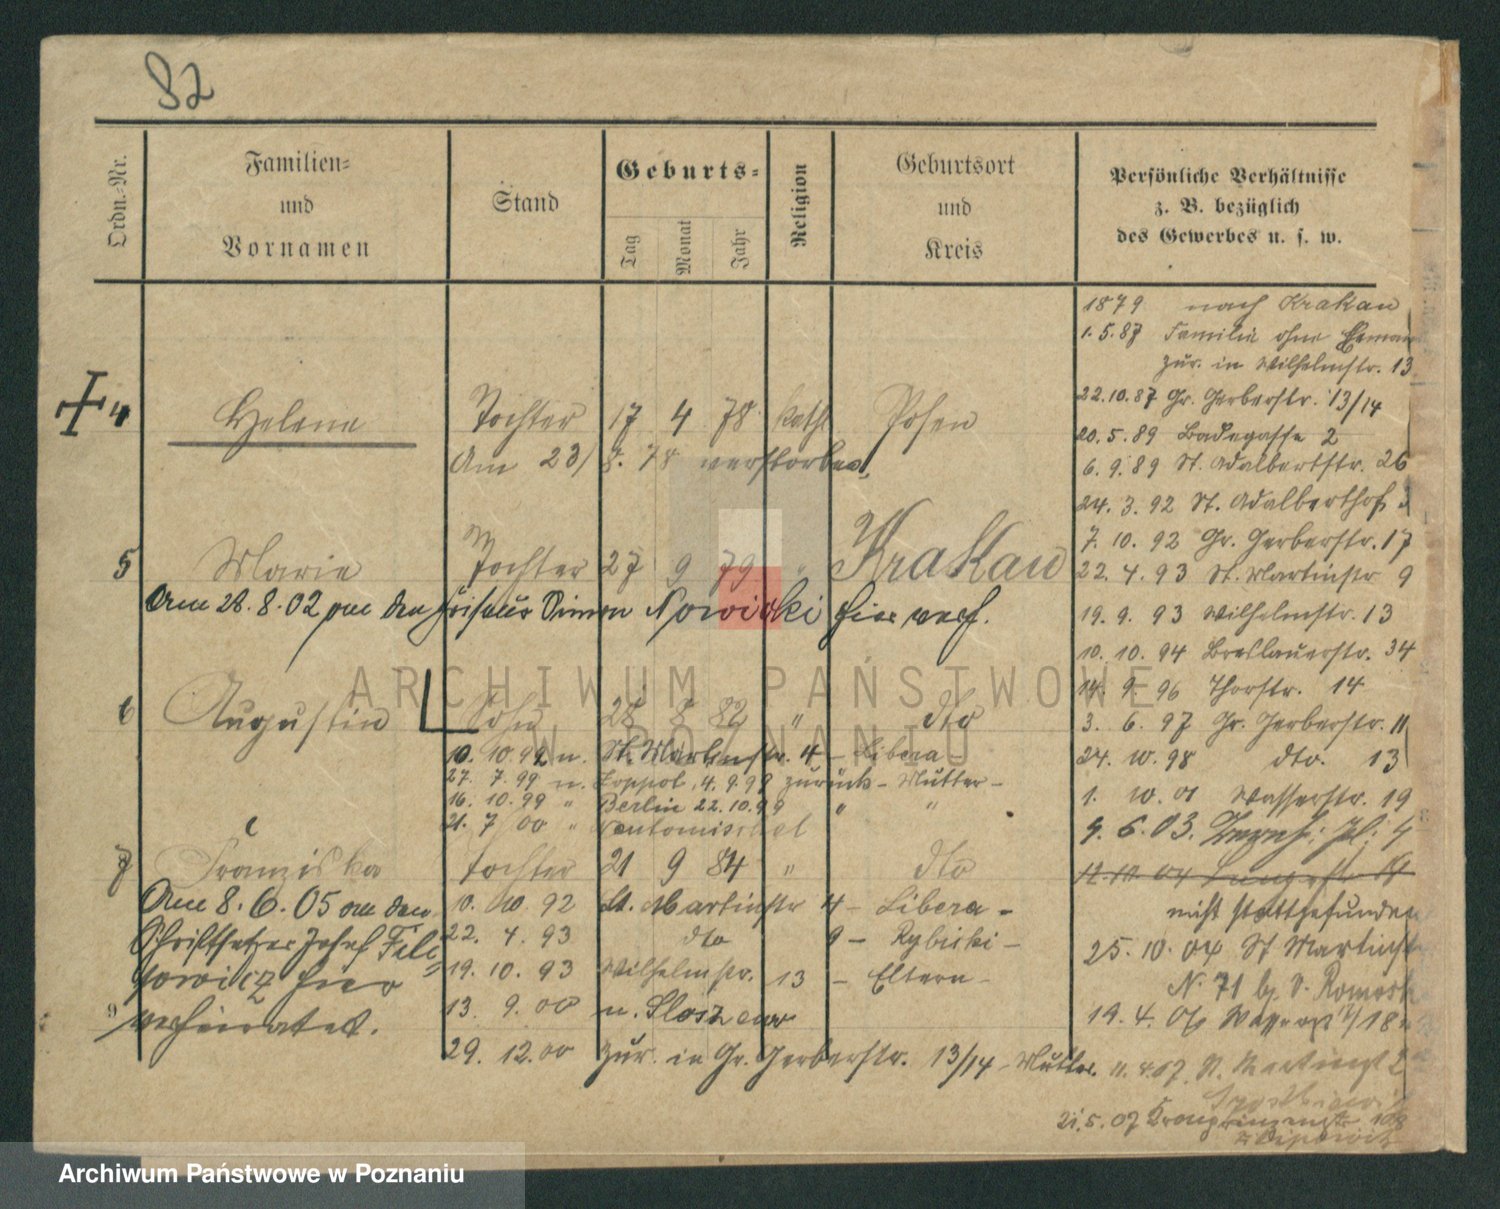 82
Ordn.-Nr.
Familien-
und
Vornamen
Stand
Geburts-
Tag
Monat
Jahr
Religion
Geburtsort
und
Kreis
Persönliche Verhältnisse
z. B. bezüglich
des Gewerbes u. s. w.
4 Helene Tochter 17 4 78 kath Posen
Am 23/8. 78 verstorben.
5 Marie Tochter 27 9 79 " Krakau
Am 28.8.02 an den Friseur Simon Nowicki hier verh.
6 Augustin Sohn 28 8 82 " dto
10. 10. 92 n. St. Martinstr. 4 - Libera -
27. 7. 99 n. Zoppot, 4. 9. 99 zurück - Mutter -
16. 10. 99 " Berlin 22. 10. 99 " "
21. 7 00 " Neutomischel
7 Franziska Tochter 21 9 84 " dto
Am 8. 6. 05 an den
Schriftsetzer Josef
hier
verheiratet.
10. 10. 92 St. Martinstr 4 - Libera -
22. 4. 93 dto 9 - Rybicki -
19. 10. 93 Wilhelmstr. 13 - Eltern -
13. 9. 00 n.
29. 12. 00 zur. in Gr. Gerberstr. 13/14 - Mutter.
9
1879 nach Krakau
1. 5. 87 Familie ohne
zur. in Wilhelmstr. 13
22. 10. 87 Gr. Gerberstr. 13/14
20. 5. 89 Badegasse 2
6. 9. 89 St. Adalbertstr. 26
24. 3. 92 St. Adalberthof
7. 10. 92 Gr. Gerberstr. 17
22. 4. 93 St. Martinstr 9
19. 9. 93 Wilhelmstr. 13
10. 10. 94 Breslauerstr. 34
14. 9. 96 Thorstr. 14
3. 6. 97 Gr. Gerberstr. 11
24. 10. 98 dto. 13
1. 10. 01 Wasserstr. 19
9. 6. 03.
12. 10 04
nicht stattgefunden
25. 10. 04 St Martinstr
N. 71 b.
19. 4. 18
11. 4. 07. St. Martinst 2
21. 5. 07 Kronprinzenstr 108
ARCHIWUM PAŃSTWOWE
W POZNANIU
Archiwum Państwowe w Poznaniu